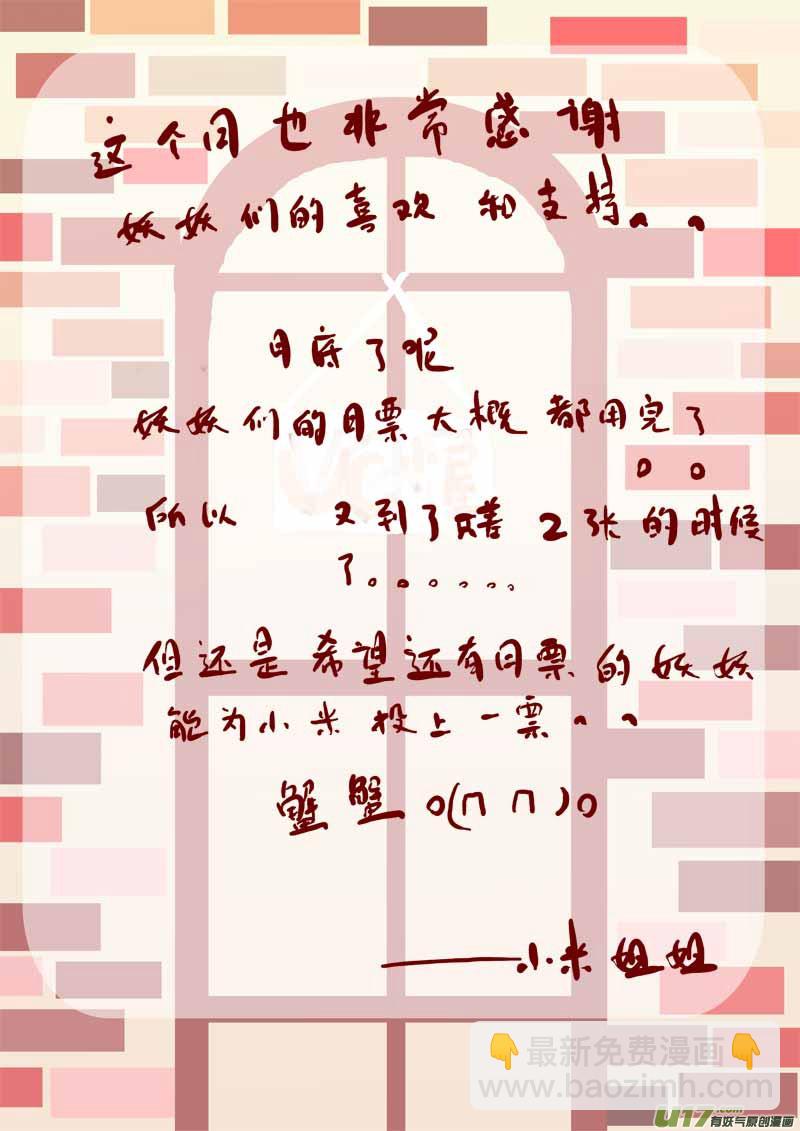 这个月也非常感谢
妖妖们的喜欢和支持。。
月底了呢
妖妖们的月票大概都用完了
。。
所以 又到了only 2张的时候
了。。。。。。
但还是希望还有月票的妖妖
能为小米投上一票^^
蟹蟹o(∩ ∩)o
——小米姐姐
👇最新免费漫画👇
www.baozimh.com
U17.com
有妖气原创漫画